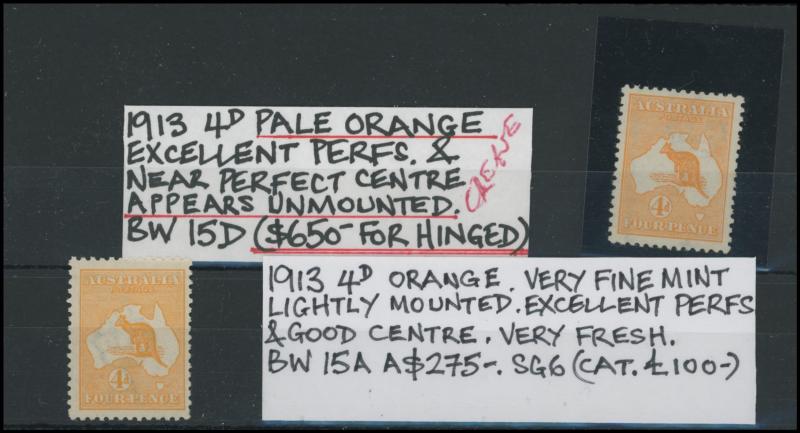 1913 4D PALE ORANGE
EXCELLENT PERFS. &
NEAR PERFECT CENTRE
APPEARS UNMOUNTED.
BW 15D ($650- FOR HINGED)
CREASE
AUSTRALIA
POSTAGE
4D
FOUR PENCE
AUSTRALIA
POSTAGE
4D
FOUR PENCE
1913 4D ORANGE. VERY FINE MINT
LIGHTLY MOUNTED. EXCELLENT PERFS
& GOOD CENTRE. VERY FRESH.
BW 15A A$275-. SG6 (CAT. £100-)